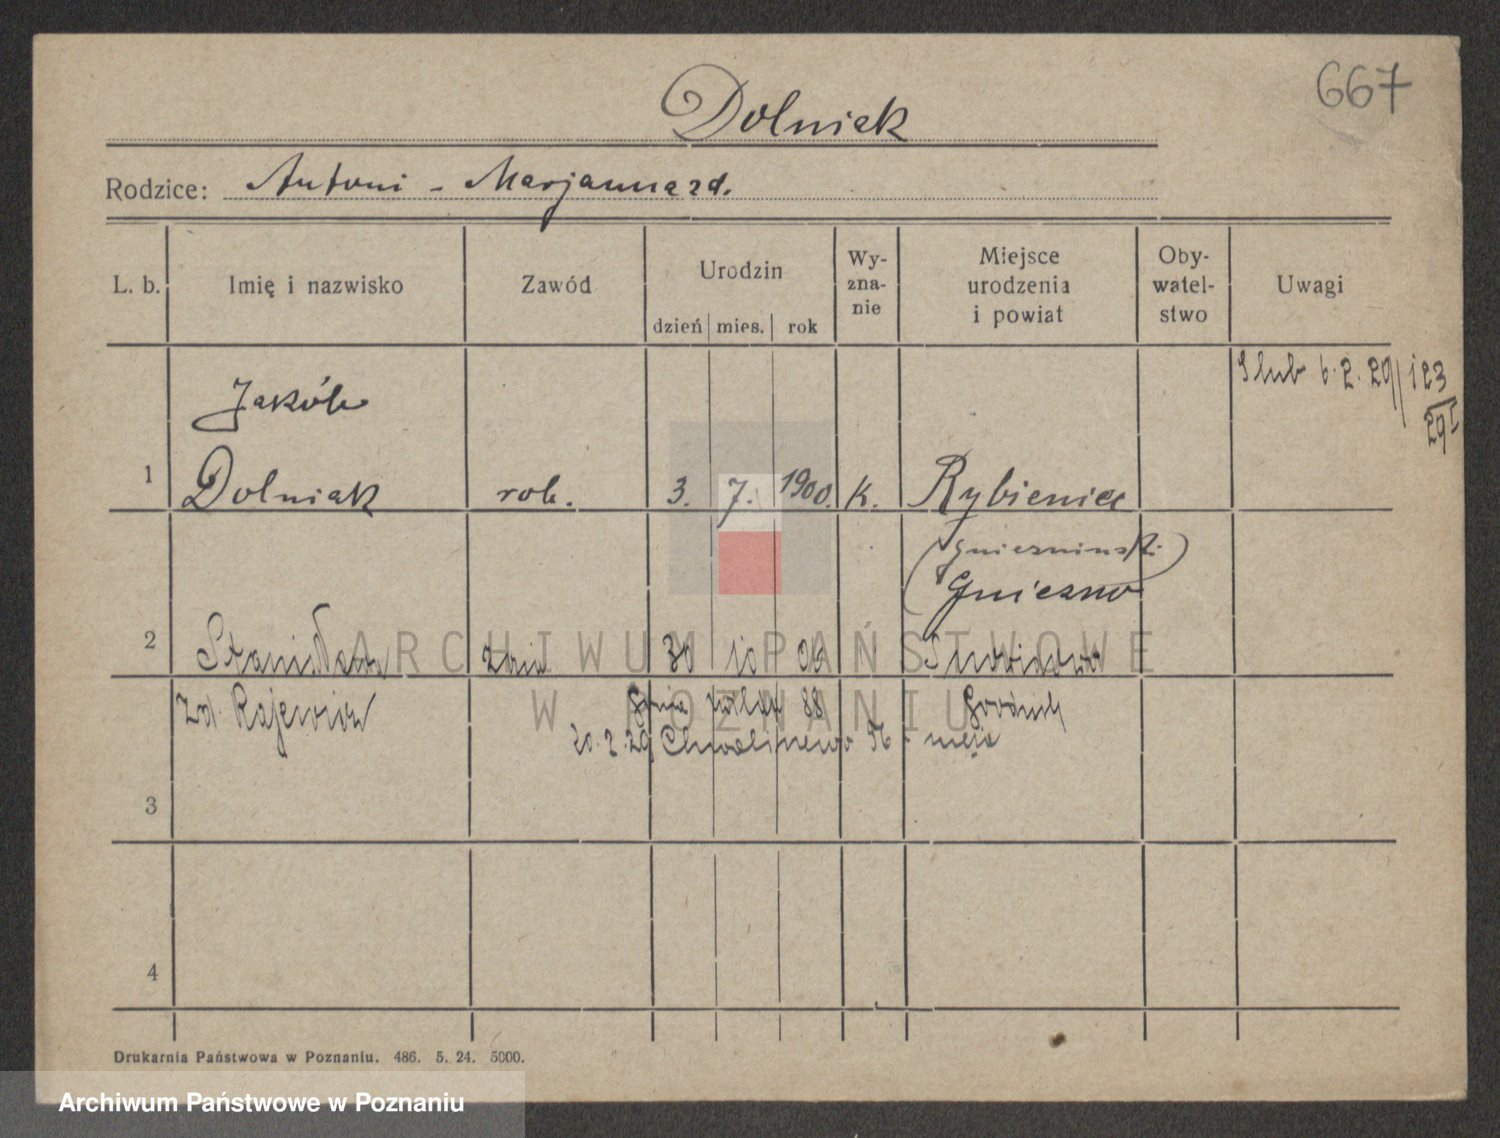 667
Dolniak
Rodzice: Antoni - Marjanna zd.
L. b. Imię i nazwisko Zawód Urodzin dzień mies. rok Wy-zna-nie Miejsce urodzenia i powiat Oby-watel-stwo Uwagi
Ślub 6.2.29/123
29
Jakób
1 Dolniak rob. 3. 7. 1900. k. Rybieniec
Gnieźnieński
Gniezno
2 Stanisława 30 10 06
zd. 88
20.2.29 56 męża
3
4
Drukarnia Państwowa w Poznaniu. 486. 5. 24. 5000.
ARCHIWUM PAŃSTWOWE
W POZNANIU
Archiwum Państwowe w Poznaniu